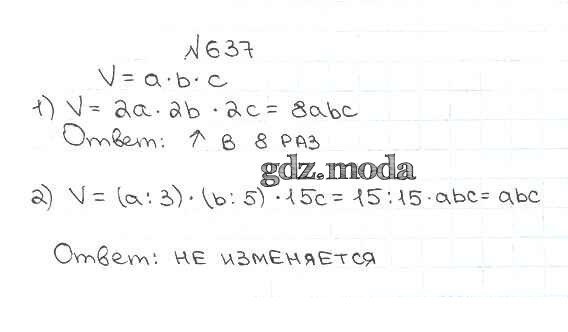 №637
V = a · b · c
1) V = 2a · 2b · 2c = 8abc
Ответ: ↑ В 8 РАЗ
gdz.moda
2) V = (a : 3) · (b : 5) · 15c = 15 : 15 · abc = abc
Ответ: НЕ ИЗМЕНЯЕТСЯ